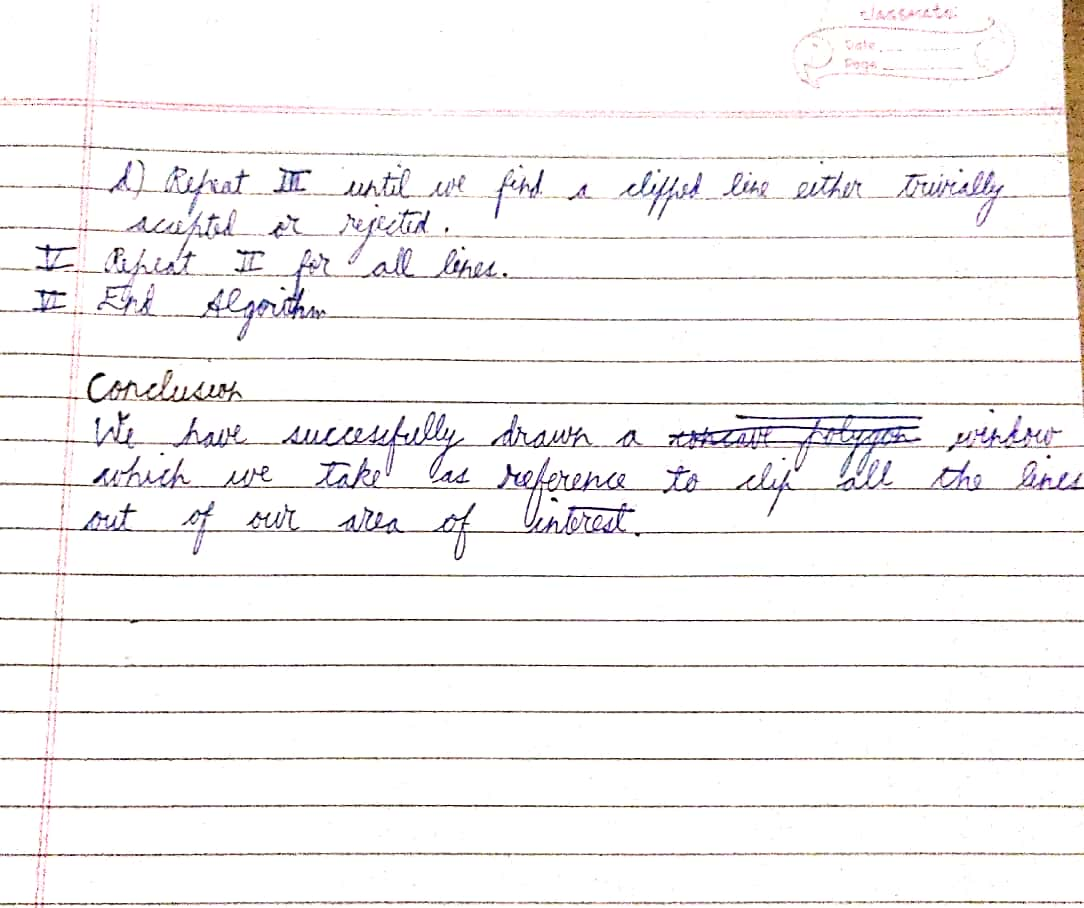 classmate
Date
Page
d) Repeat III until we find a clipped line either trivially
accepted or rejected.
V Repeat II for all lines.
VI End Algorithm
Conclusion
We have succesfully drawn a concave polygon window
which we take as reference to clip all the lines
out of our area of interest.